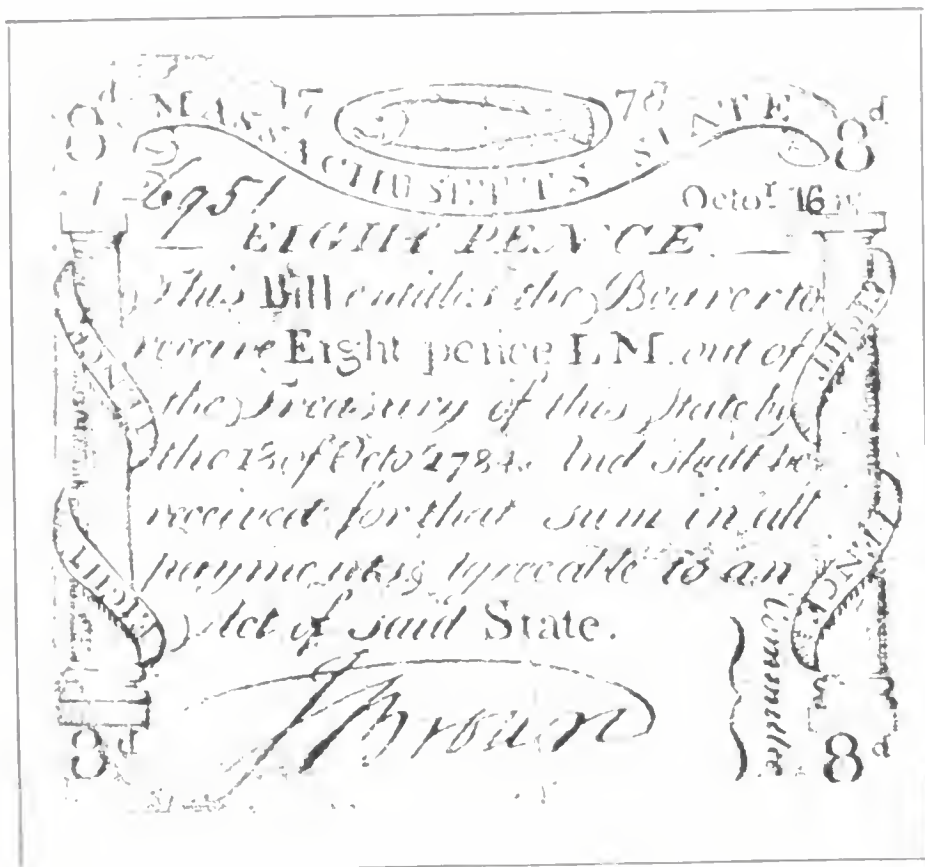 8d 17 78 8d
MASSACHUSETTS STATE
6951 Octor. 16
EIGHT PENCE
This Bill entitles the Bearer to
receive Eight pence L M. out of
the Treasury of this State by
the 18 of Octor 1784. And shall be
received for that sum in all
payments agreeable to an
Act of said State.
PENCE
EIGHT
EIGHT
PENCE
J Brown
Committee
8 8d